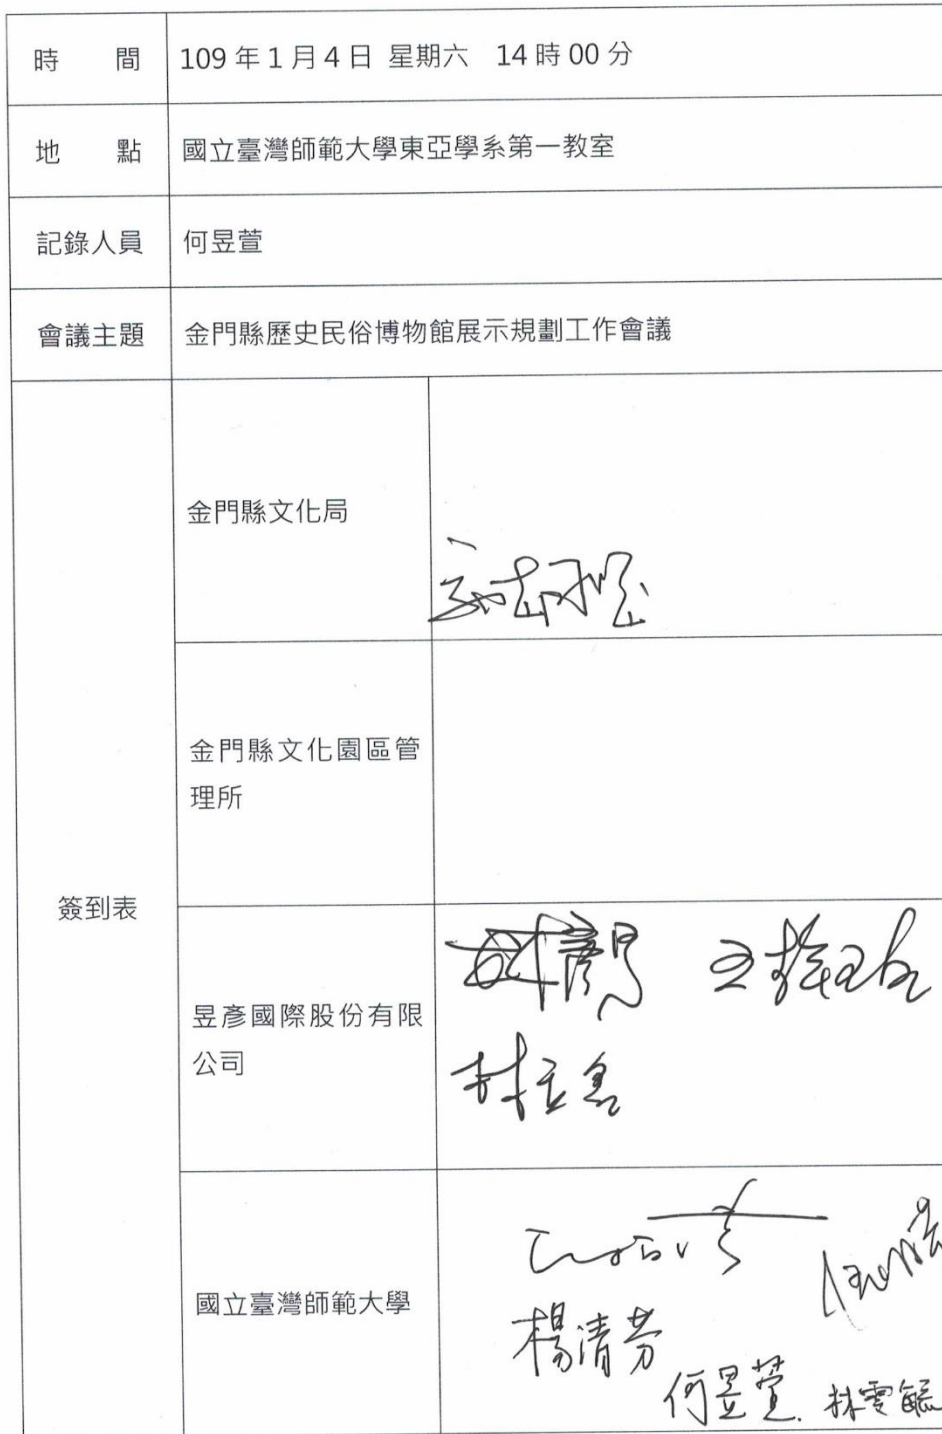 時 間 109 年 1 月 4 日 星期六 14 時 00 分
地 點 國立臺灣師範大學東亞學系第一教室
記錄人員 何昱萱
會議主題 金門縣歷史民俗博物館展示規劃工作會議
簽到表
金門縣文化局
金門縣文化園區管
理所
昱彥國際股份有限
公司
林立
國立臺灣師範大學
楊清芬
何昱萱
林雯毓